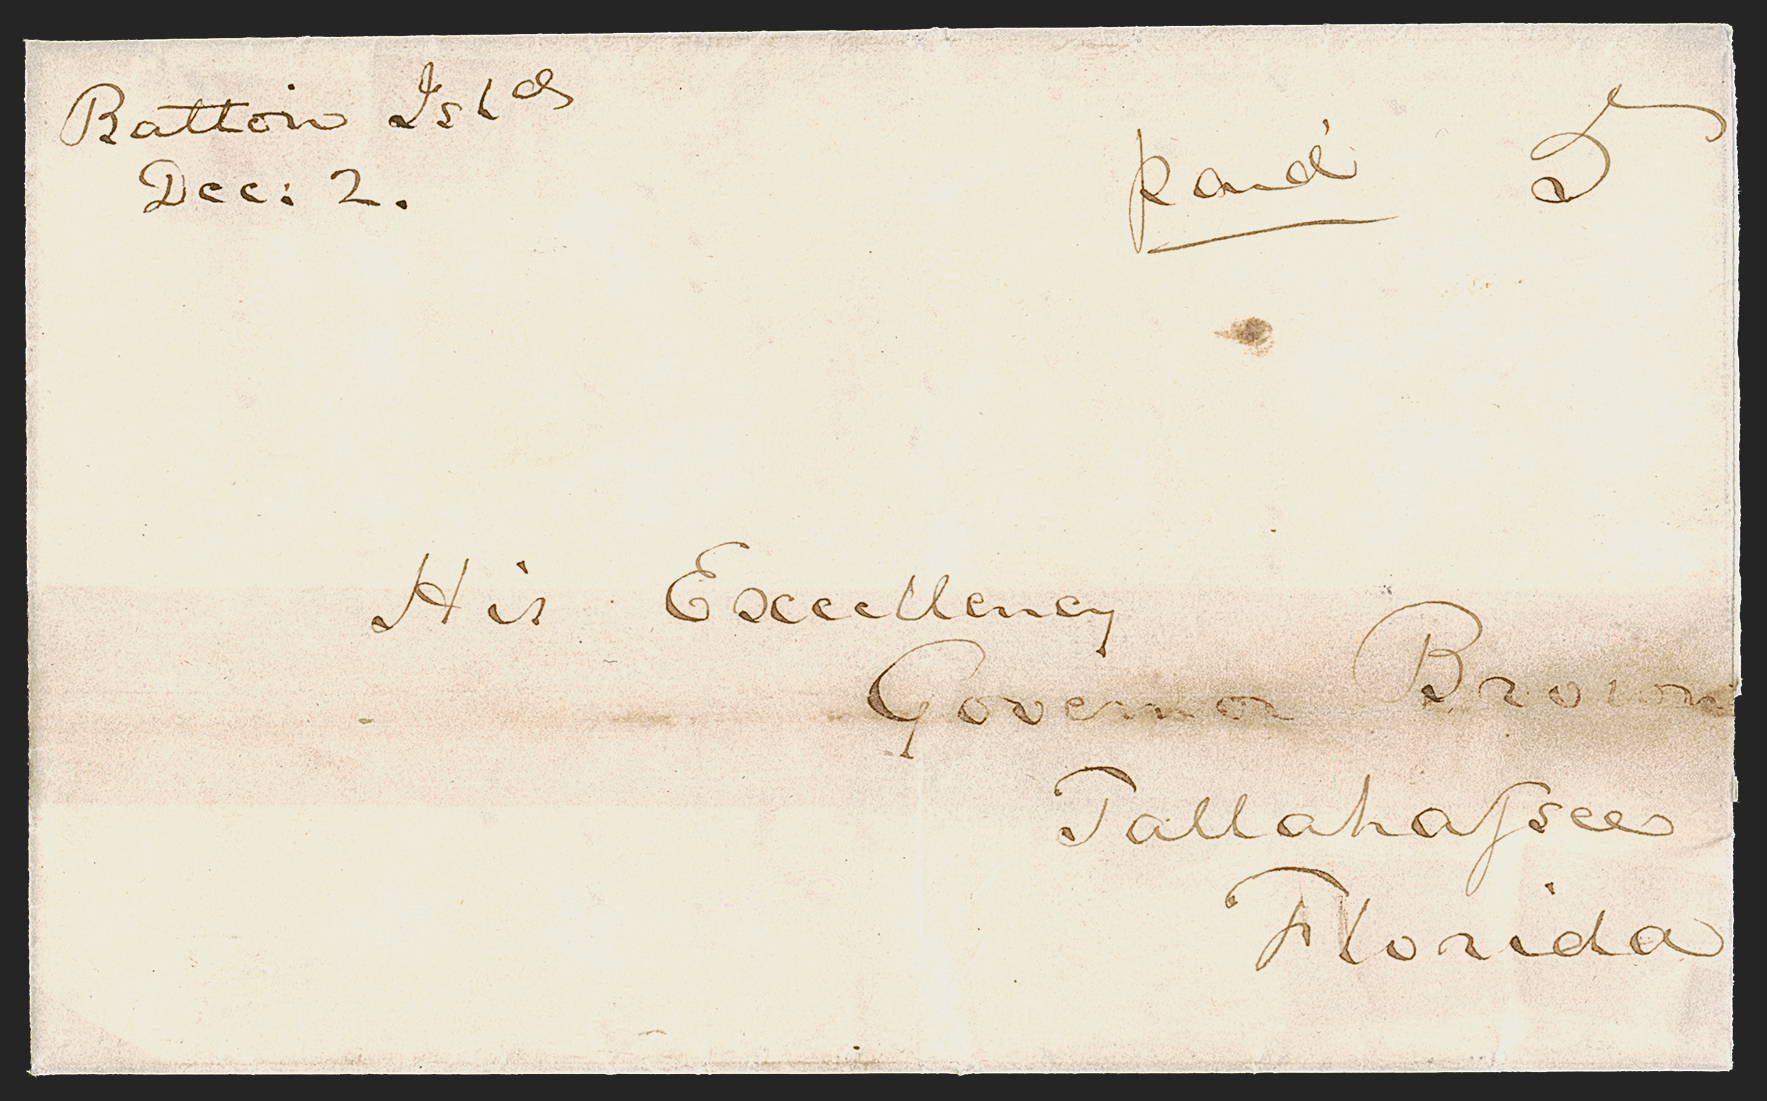 Batton Islds
Dec: 2.
paid 5
His Excellency
Governor Brown
Tallahassee
Florida